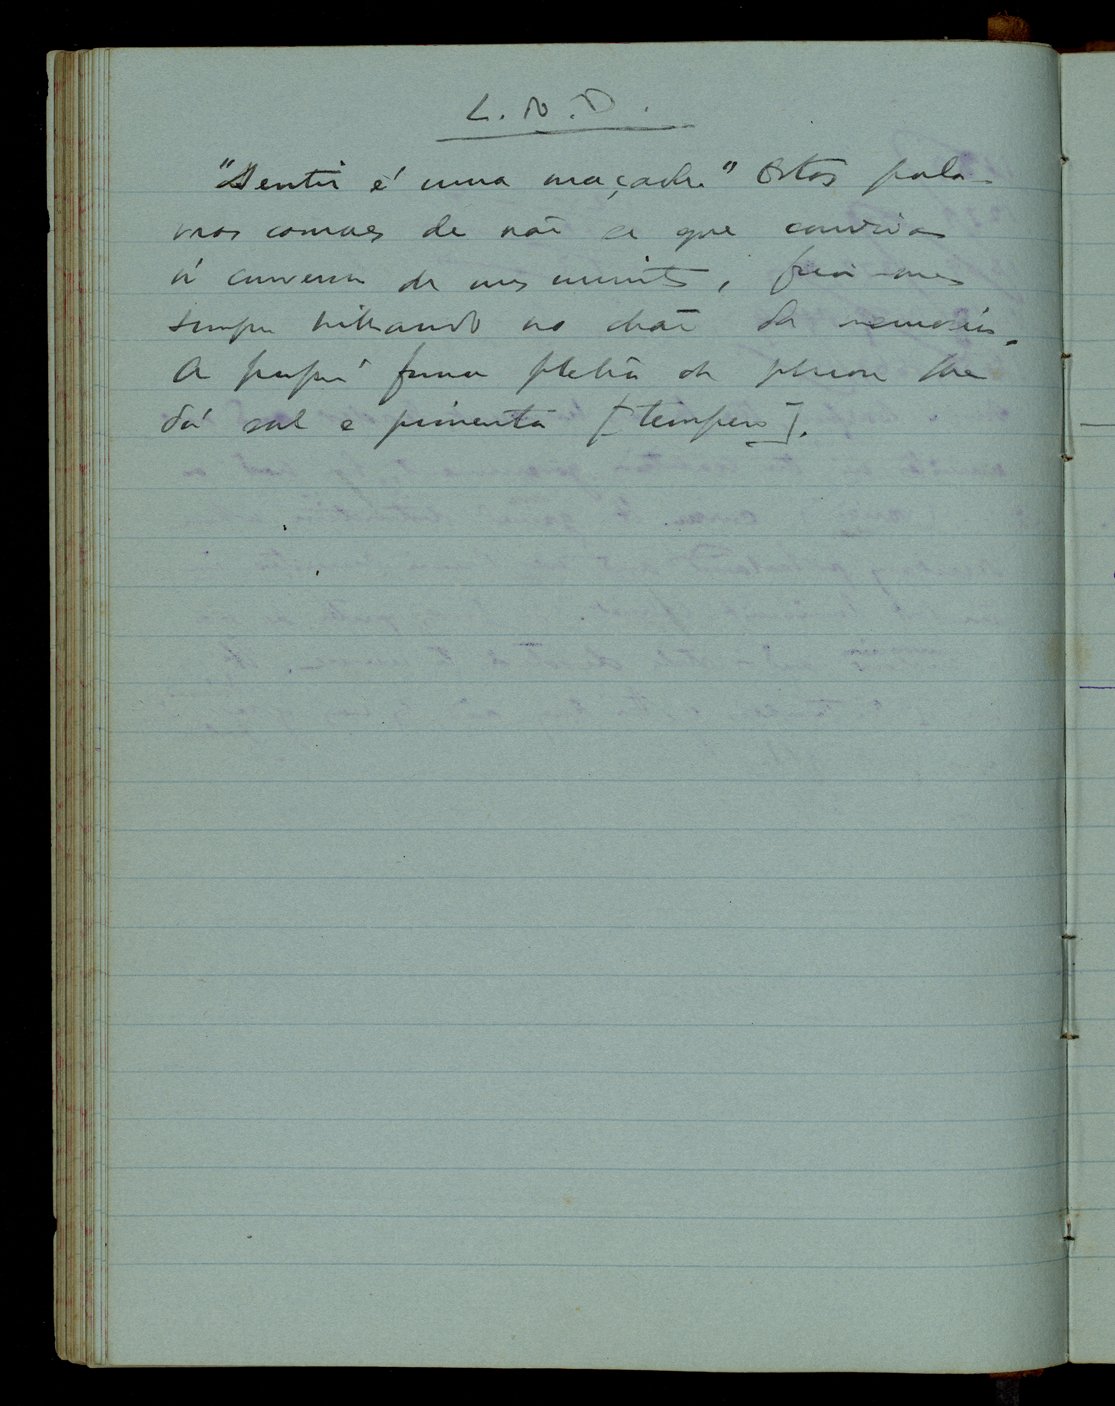 L. do D.
"Sentir é uma maçada." Estas pala-
vras casuaes de não sei que conviva
á conversa de uns minutos, ficou-me
sempre brilhando no chão da memoria.
A propria forma plebeia da phrase lhe
dá sal e pimenta [tempero].